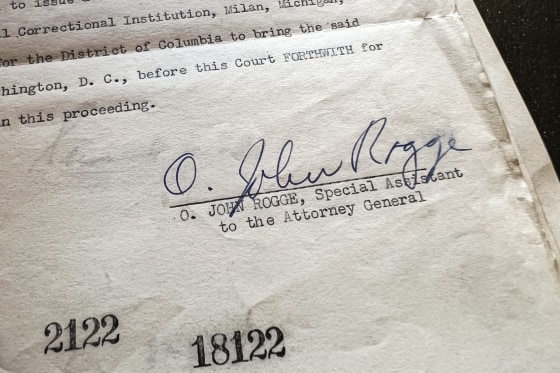 to issue a
l Correctional Institution, Milan, Michigan,
or the District of Columbia to bring the said
hington, D. C., before this Court FORTHWITH for
n this proceeding.
O. John Rogge
O. JOHN ROGGE, Special Assistant
to the Attorney General
2122 18122